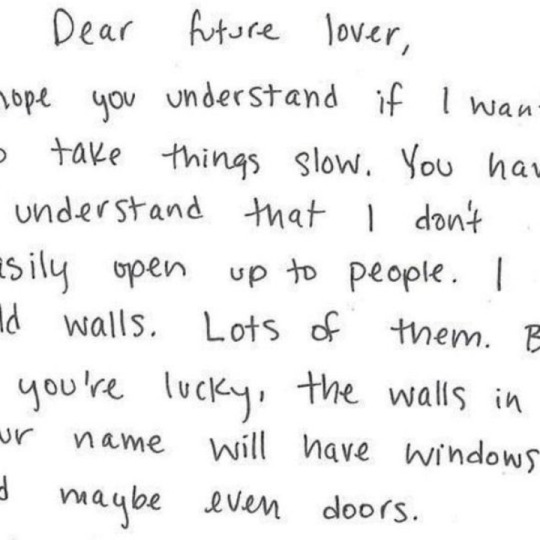 Dear future lover,
hope you understand if I want
to take things slow. You have
understand that I don't
easily open up to people. I
build walls. Lots of them. But
you're lucky, the walls in
your name will have windows
and maybe even doors.